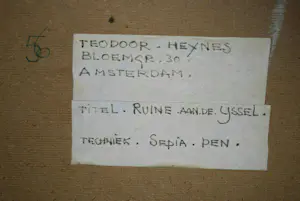 56
TEODOOR. HEYNES
BLOEMGR. 30
AMSTERDAM.
TITEL. RUINE AAN.DE. YSSEL.
TECHNIEK. SEPIA. PEN.